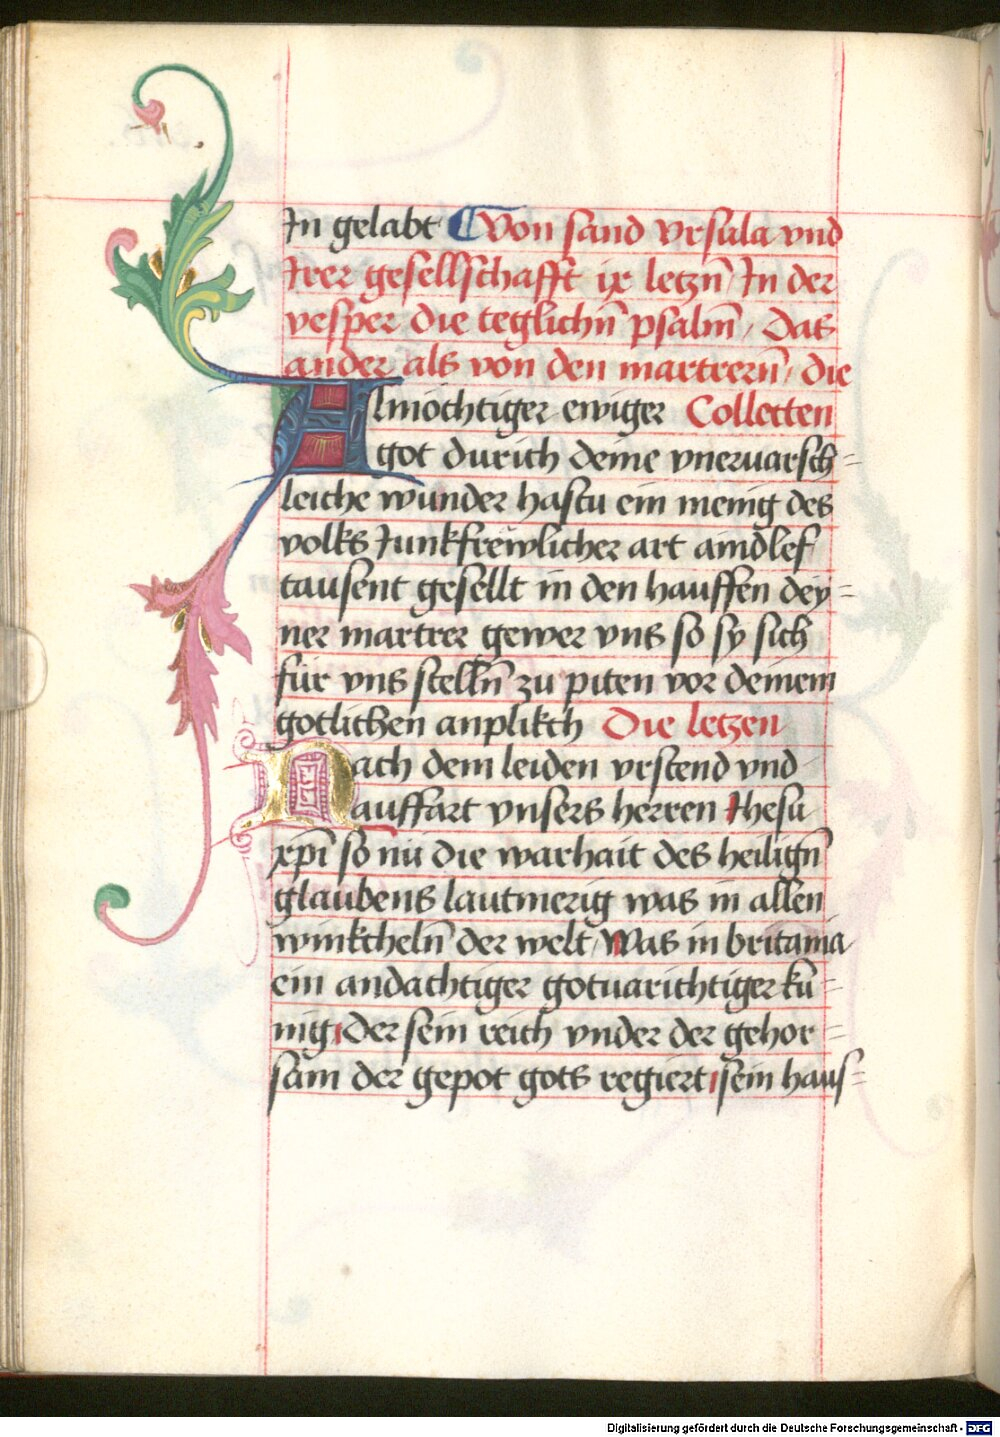 In gelabt Von sand vrsula vnd
Irer gesellschafft ix letzn̄ In der
vesper die teglichn̄ psalm̄, Das
ander als von den martrern̄, die
Almöchtiger ewiger Collecten
got durich deine vneruarsch=
leiche wunder hastu ein menig des
volks Junkfrëwlicher art aindlef
tausent gesellt in den hauffen dey=
ner martrer gewer vns so sy sich
für vns stelln̄ zu piten vor deinem
gotlichen anplikch Die letzen
Nach dem leiden vrstend vnd
auffart vnsers herren Ihesu
xp̄i so nu die warhait des heilign̄
glaubens lautmerig was in allen
winkcheln̄ der welt, Was in britania
ein andachtiger gotuarichtiger kü=
nig der sein reich vnder der gehor=
sam der gepot gots regiert sein haus=
Digitalisierung gefördert durch die Deutsche Forschungsgemeinschaft - DFG